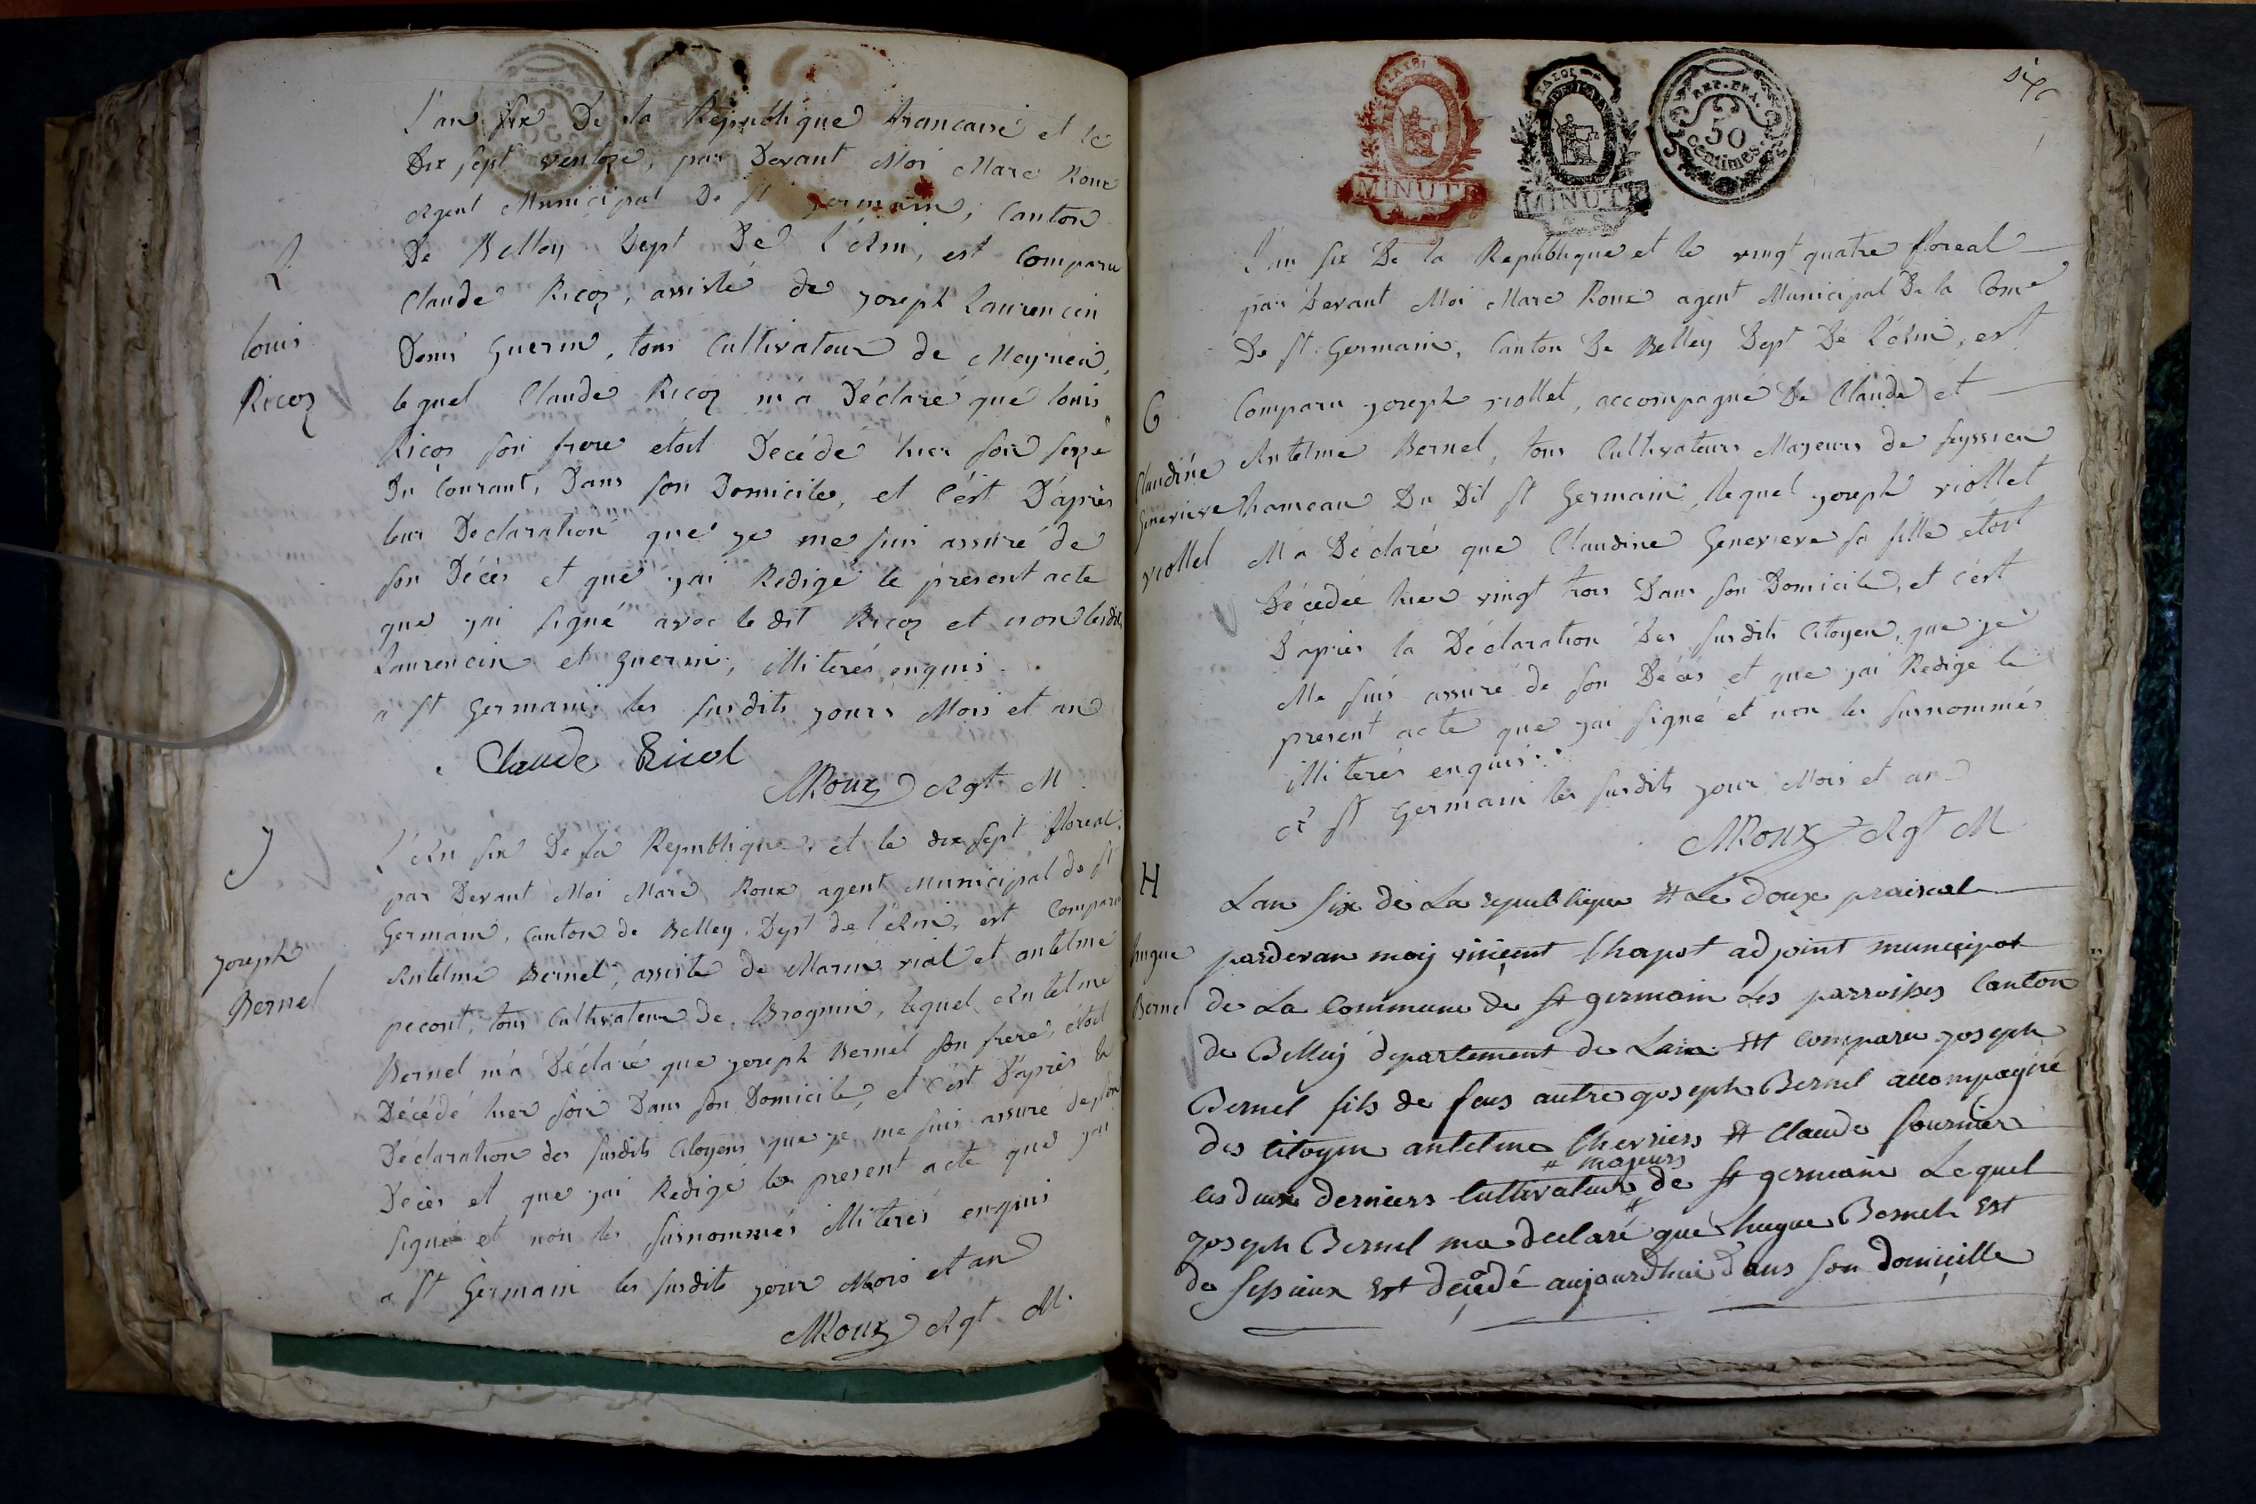 L'an six De la Republique francaise et le
Dix sept ventose, par Devant Moi Marc Roux
Agent Municipal De st germain, Canton
De Belley Dept De l'Ain, est Comparu
Claude Ricoz, assisté de joseph Laurencin
Denis Guerin, tous Cultivateurs de Meyrieu,
lequel Claude Ricoz m'a Déclaré que louis
Ricoz son frere etoit Decédé hier soir seize
Du Courant, Dans son Domicile, et C'est D'après
leur Declaration que je me suis assuré de
son Décès et que j'ai Redigé le present acte
que j'ai signé avec le dit Ricoz et non lesdits
Laurencin et guerin, illiterés enquis.
a st Germain les susdits jours Mois et an
Claude Ricol
MRoux Agt M
L.
louis
Ricoz
L'An six De la Republique et le dix sept floreal
par Devant Moi Marc Roux agent Municipal de st
Germain, Canton de Belley, Dept de l'Ain, est Comparu
Antelme Bernel, assisté de Marin vial et antelme
pecout, tous Cultivateurs de Brognin, lequel Antelme
Bernel m'a Déclaré que joseph Bernel son frere, étoit
Décédé hier soir Dans son Domicile, et C'est D'après la
Déclaration des susdits Citoyens que je me suis assuré de son
Décès et que j'ai Redigé le present acte que j'ai
signé et non les surnommés illiterés enquis
a st Germain les susdits jour Mois et an
MRoux Agt M.
J
joseph
Bernel
six
MINUTE
MINUTE
REP. FRA.
50
Centimes.
L'an six De la Republique et le vingt quatre floreal
par Devant Moi Marc Roux agent Municipal De la Come
De st Germain, Canton De Belley Dept De l'Ain, est
Comparu joseph viollet, accompagné De Claude et
Antelme Bernel, tous Cultivateurs Majeurs de seyssieu
hameau Du Dit st Germain, lequel joseph viollet
M'a Déclaré que Claudine Genevieve sa fille étoit
Décédée hier vingt trois Dans son Domicile, et c'est
D'après la Déclaration Des susdits Citoyen, que je
Me suis assuré de son Décès et que j'ai Redigé le
present acte que j'ai signé et non les surnommés
illiterés enquis.
a st Germain les susdits jour Mois et an
MRoux Agt M
C
Claudine
Genevieve
viollet
Lan six de La republique et Le douze prairial
pardevan moy vincent Chapot adjoint municipal
de La Commune de st germain Les parroisses Canton
de Belley departement de Lain Est comparu joseph
Bernel fils de feus autre joseph Bernel accompagné
des citoyen antelme Chevriers et Claude fournier
majeurs
les deux derniers Cultivateur de st germain Lequel
joseph Bernel ma declaré que hugue Bernel Est
de sessieux est decedé aujourdhui dans son domicille
H
hugue
Bernel